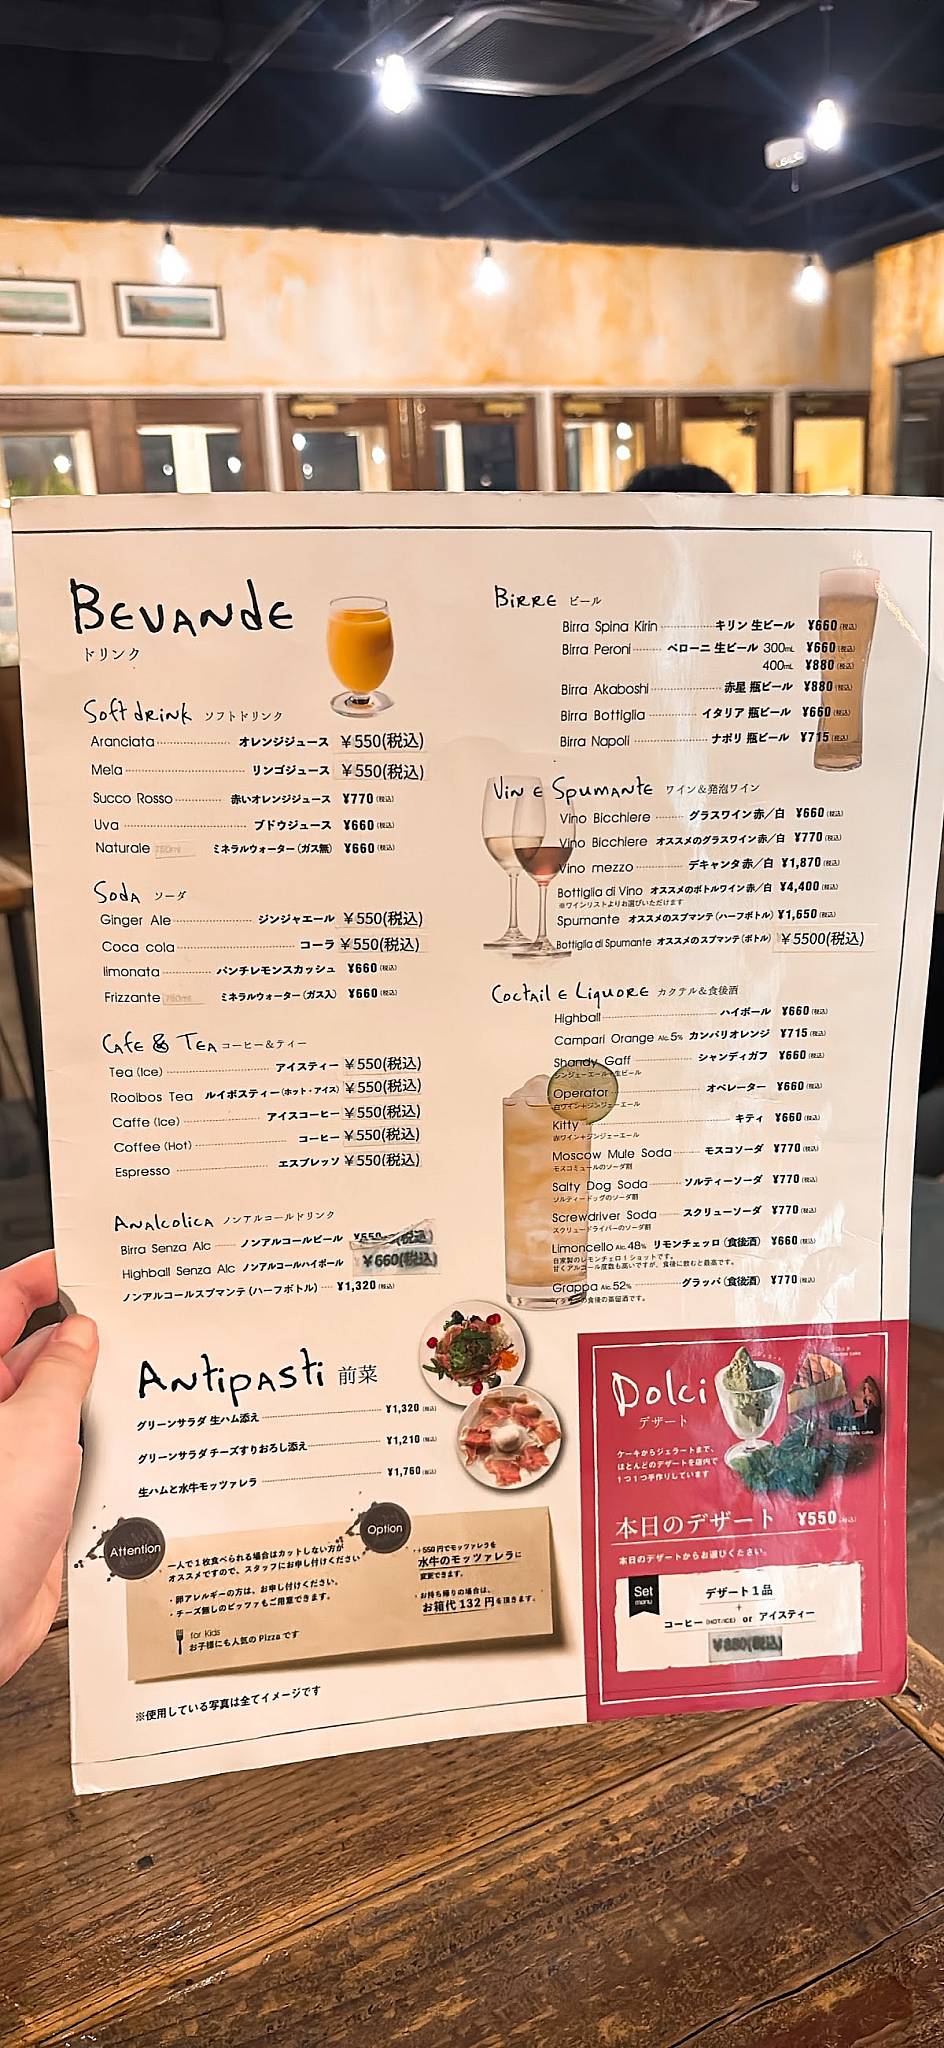 BEVANDE
ドリンク
Soft drink ソフトドリンク
Aranciata オレンジジュース ￥550(税込)
Mela リンゴジュース ￥550(税込)
Succo Rosso 赤いオレンジジュース ¥770(税込)
Uva ブドウジュース ¥660(税込)
Naturale 750ml ミネラルウォーター(ガス無) ¥660(税込)
Soda ソーダ
Ginger Ale ジンジャエール ￥550(税込)
Coca cola コーラ ￥550(税込)
limonata パンチレモンスカッシュ ¥660(税込)
Frizzante 750ml ミネラルウォーター(ガス入) ¥660(税込)
Cafe & Tea コーヒー&ティー
Tea (Ice) アイスティー ￥550(税込)
Rooibos Tea ルイボスティー(ホット・アイス) ￥550(税込)
Caffe (Ice) アイスコーヒー ￥550(税込)
Coffee (Hot) コーヒー ￥550(税込)
Espresso エスプレッソ ￥550(税込)
Analcolica ノンアルコールドリンク
Birra Senza Alc ノンアルコールビール ¥550(税込)
Highball Senza Alc ノンアルコールハイボール ￥660(税込)
ノンアルコールスプマンテ(ハーフボトル) ¥1,320(税込)
Birre ビール
Birra Spina Kirin キリン 生ビール ¥660(税込)
Birra Peroni ペローニ 生ビール 300mL ¥660(税込)
400mL ¥880(税込)
Birra Akaboshi 赤星 瓶ビール ¥880(税込)
Birra Bottiglia イタリア 瓶ビール ¥660(税込)
Birra Napoli ナポリ 瓶ビール ¥715(税込)
Vin e Spumante ワイン&発泡ワイン
Vino Bicchiere グラスワイン 赤/白 ¥660(税込)
Vino Bicchiere オススメのグラスワイン 赤/白 ¥770(税込)
Vino mezzo デキャンタ 赤/白 ¥1,870(税込)
Bottiglia di Vino オススメのボトルワイン 赤/白 ¥4,400(税込)
※ワインリストよりお選びいただけます
Spumante オススメのスプマンテ(ハーフボトル) ¥1,650(税込)
Bottiglia di Spumante オススメのスプマンテ(ボトル) ￥5500(税込)
Coctail e Liquore カクテル&食後酒
Highball ハイボール ¥660(税込)
Campari Orange Alc.5% カンパリオレンジ ¥715(税込)
Shandy Gaff シャンディガフ ¥660(税込)
ジンジャーエール+生ビール
Operator オペレーター ¥660(税込)
白ワイン+ジンジャーエール
Kitty キティ ¥660(税込)
赤ワイン+ジンジャーエール
Moscow Mule Soda モスコソーダ ¥770(税込)
モスコミュールのソーダ割
Salty Dog Soda ソルティーソーダ ¥770(税込)
ソルティードッグのソーダ割
Screwdriver Soda スクリューソーダ ¥770(税込)
スクリュードライバーのソーダ割
Limoncello Alc.48% リモンチェッロ(食後酒) ¥660(税込)
自家製のレモンチェロ1ショットです。
甘くアルコール度数も高いですが、食後に飲むと最高です。
Grappa Alc.52% グラッパ(食後酒) ¥770(税込)
イタリアの食後の蒸留酒です。
Antipasti 前菜
グリーンサラダ 生ハム添え ¥1,320(税込)
グリーンサラダ チーズすりおろし添え ¥1,210(税込)
生ハムと水牛モッツァレラ ¥1,760(税込)
Attention
一人で1枚食べられる場合はカットしない方が
オススメですので、スタッフにお申し付けください
・卵アレルギーの方は、お申し付けください。
・チーズ無しのピッツァもご用意できます。
for Kids
お子様にも人気の Pizza です
Option
・+550円でモッツァレラを
水牛のモッツァレラに
変更できます。
・お持ち帰りの場合は、
お箱代 132 円を頂きます。
※使用している写真は全てイメージです
Dolci
デザート
ケーキからジェラートまで、
ほとんどのデザートを店内で
1つ1つ手作りしています
本日のデザート ¥550(税込)
本日のデザートからお選びください。
Set menu
デザート1品
+
コーヒー(HOT/ICE) or アイスティー
￥880(税込)